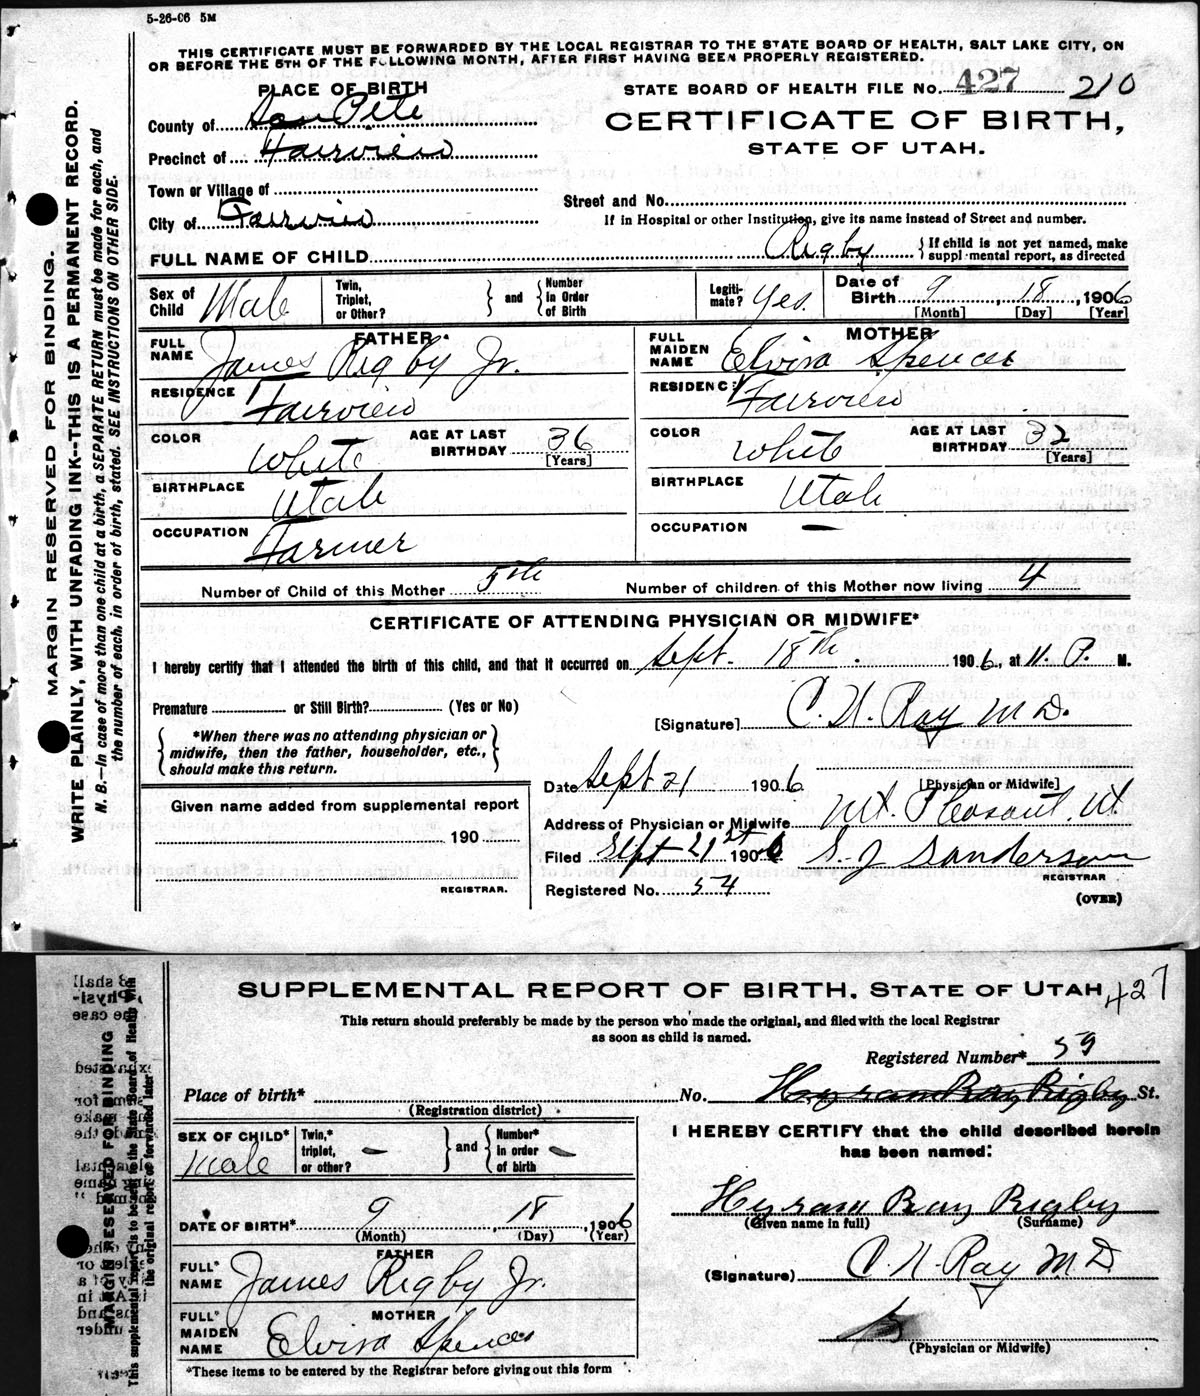 5-26-06 5M
THIS CERTIFICATE MUST BE FORWARDED BY THE LOCAL REGISTRAR TO THE STATE BOARD OF HEALTH, SALT LAKE CITY, ON
OR BEFORE THE 5TH OF THE FOLLOWING MONTH, AFTER FIRST HAVING BEEN PROPERLY REGISTERED.
PLACE OF BIRTH
STATE BOARD OF HEALTH FILE No. 427 210
County of San Pete
CERTIFICATE OF BIRTH,
STATE OF UTAH.
Precinct of Fairview
Town or Village of
Street and No.
City of Fairview
If in Hospital or other Institution, give its name instead of Street and number.
FULL NAME OF CHILD Rigby { If child is not yet named, make
supplemental report, as directed
Sex of Child Male Twin, Triplet, or Other? } and { Number In Order of Birth Legiti-mate? Yes. Date of Birth 9, 18, 1906
[Month] [Day] [Year]
FATHER MOTHER
FULL NAME James Rigby Jr. FULL MAIDEN NAME Elvira Spencer
RESIDENCE Fairview RESIDENCE Fairview
COLOR White AGE AT LAST BIRTHDAY 36 [Years] COLOR White AGE AT LAST BIRTHDAY 32 [Years]
BIRTHPLACE Utah BIRTHPLACE Utah
OCCUPATION Farmer OCCUPATION —
Number of Child of this Mother 5th Number of children of this Mother now living 4
CERTIFICATE OF ATTENDING PHYSICIAN OR MIDWIFE*
I hereby certify that I attended the birth of this child, and that it occurred on Sept. 18th. 1906, at 11. P. M.
Premature or Still Birth? (Yes or No)
[Signature] C. N. Ray M D.
{ *When there was no attending physician or
midwife, then the father, householder, etc.,
should make this return. }
Date Sept 21 1906 [Physician or Midwife]
Given name added from supplemental report
190
REGISTRAR.
Address of Physician or Midwife Mt. Pleasant, Ut.
Filed Sept 21st 1906 S. J. Sanderson
REGISTRAR
Registered No. 54
(OVER)
MARGIN RESERVED FOR BINDING.
WRITE PLAINLY, WITH UNFADING INK--THIS IS A PERMANENT RECORD.
N. B.—In case of more than one child at a birth, a SEPARATE RETURN must be made for each, and
the number of each, in order of birth, stated. SEE INSTRUCTIONS ON OTHER SIDE.
SUPPLEMENTAL REPORT OF BIRTH. STATE OF UTAH 427
This return should preferably be made by the person who made the original, and filed with the local Registrar
as soon as child is named.
Registered Number* 59
Place of birth* No. Hyram Ray Rigby St.
(Registration district)
SEX OF CHILD* Male Twin,* triplet, or other? – } and { Number* In order of birth –
I HEREBY CERTIFY that the child described herein
has been named:
Hyram Ray Rigby
(Given name in full) (Surname)
DATE OF BIRTH* 9, 18, 1906
(Month) (Day) (Year)
FATHER
FULL* NAME James Rigby Jr.
(Signature) C. N. Ray M D
MOTHER
FULL* MAIDEN NAME Elvira Spencer
(Physician or Midwife)
*These items to be entered by the Registrar before giving out this form
MARGIN RESERVED FOR BINDING
This supplemental report is to be sent to the State Board of Health with
the original report or forwarded later